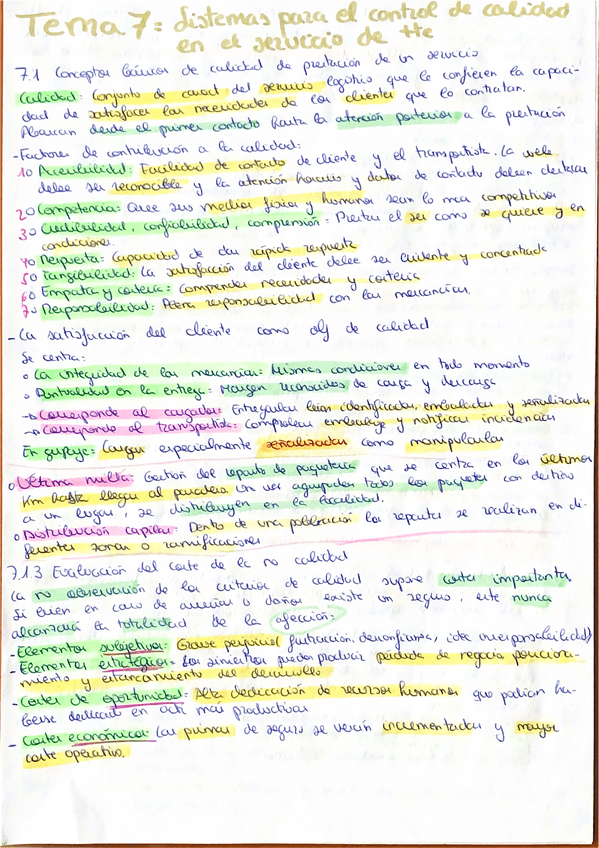 Tema 7: Sistemas para el control de calidad
en el servicio de tte
7.1 Conceptos básicos de calidad de prestación de un servicio
Calidad: Conjunto de caract del servicio logístico que le confieren la capaci-
dad de satisfacer las necesidades de los clientes que lo contratan.
Abarcan desde el primer contacto hasta la atención posterior a la prestación
- Factores de contribución a la calidad:
1o Accesibilidad: Facilidad de contacto de cliente y el transportista. La web
debe ser reconocible y la atención horario y datos de contacto deben declarar
2o Competencia: Que sus medios físicos y humanos sean lo más competitivos
3o Credibilidad, confiabilidad, comprensión: Prestar el ser como se quiere y en
condiciones.
4o Respuesta: Capacidad de dar rápida respuesta
5o Tangibilidad: La satisfacción del cliente debe ser evidente y concentrada
6o Empatía y cortesía: Comprender necesidades y cortesía
7o Responsabilidad: responsabilidad con las mercancías.
- La satisfacción del cliente como obj de calidad
Se centra:
o La integridad de las mercancías: Mismas condiciones en todo momento
o Puntualidad en la entrega: Margen reconocidos de carga y descarga
→ Corresponde al cargador: Entregarlas bien identificadas, embaladas y señalizadas
→ Corresponde al transportista: Comprobar embalaje y notificar incidencias
En grupaje: Cargas especialmente señalizadas como manipuladas
o Última milla: Gestión del reparto de paquetería que se centra en los últimos
Km hasta llegar al paradero. Un vez agrupados todos los paquetes con destino
a un lugar, se distribuyen en la localidad.
o Distribución capilar: Dentro de una población los repartos se realizan en di-
ferentes zonas o ramificaciones
7.1.3 Evaluación del coste de la no calidad
La no observación de los criterios de calidad supone costes importantes,
Si bien en caso de averías o daños existe un seguro, este nunca
alcanzará la totalidad de la afección:
- Elementos subjetivos: Grave perjuicio (frustración, desconfianza, idea irresponsabilidad)
- Elementos estratégicos: Los siniestros pueden producir pérdida de negocio posiciona-
miento y estancamiento del desarrollo
- Costes de oportunidad: Alta dedicación de recursos humanos que podían ha-
berse dedicado en acti más productivas
- Costes económicos: Las primas de seguro se verán incrementadas y mayor
coste operativo.